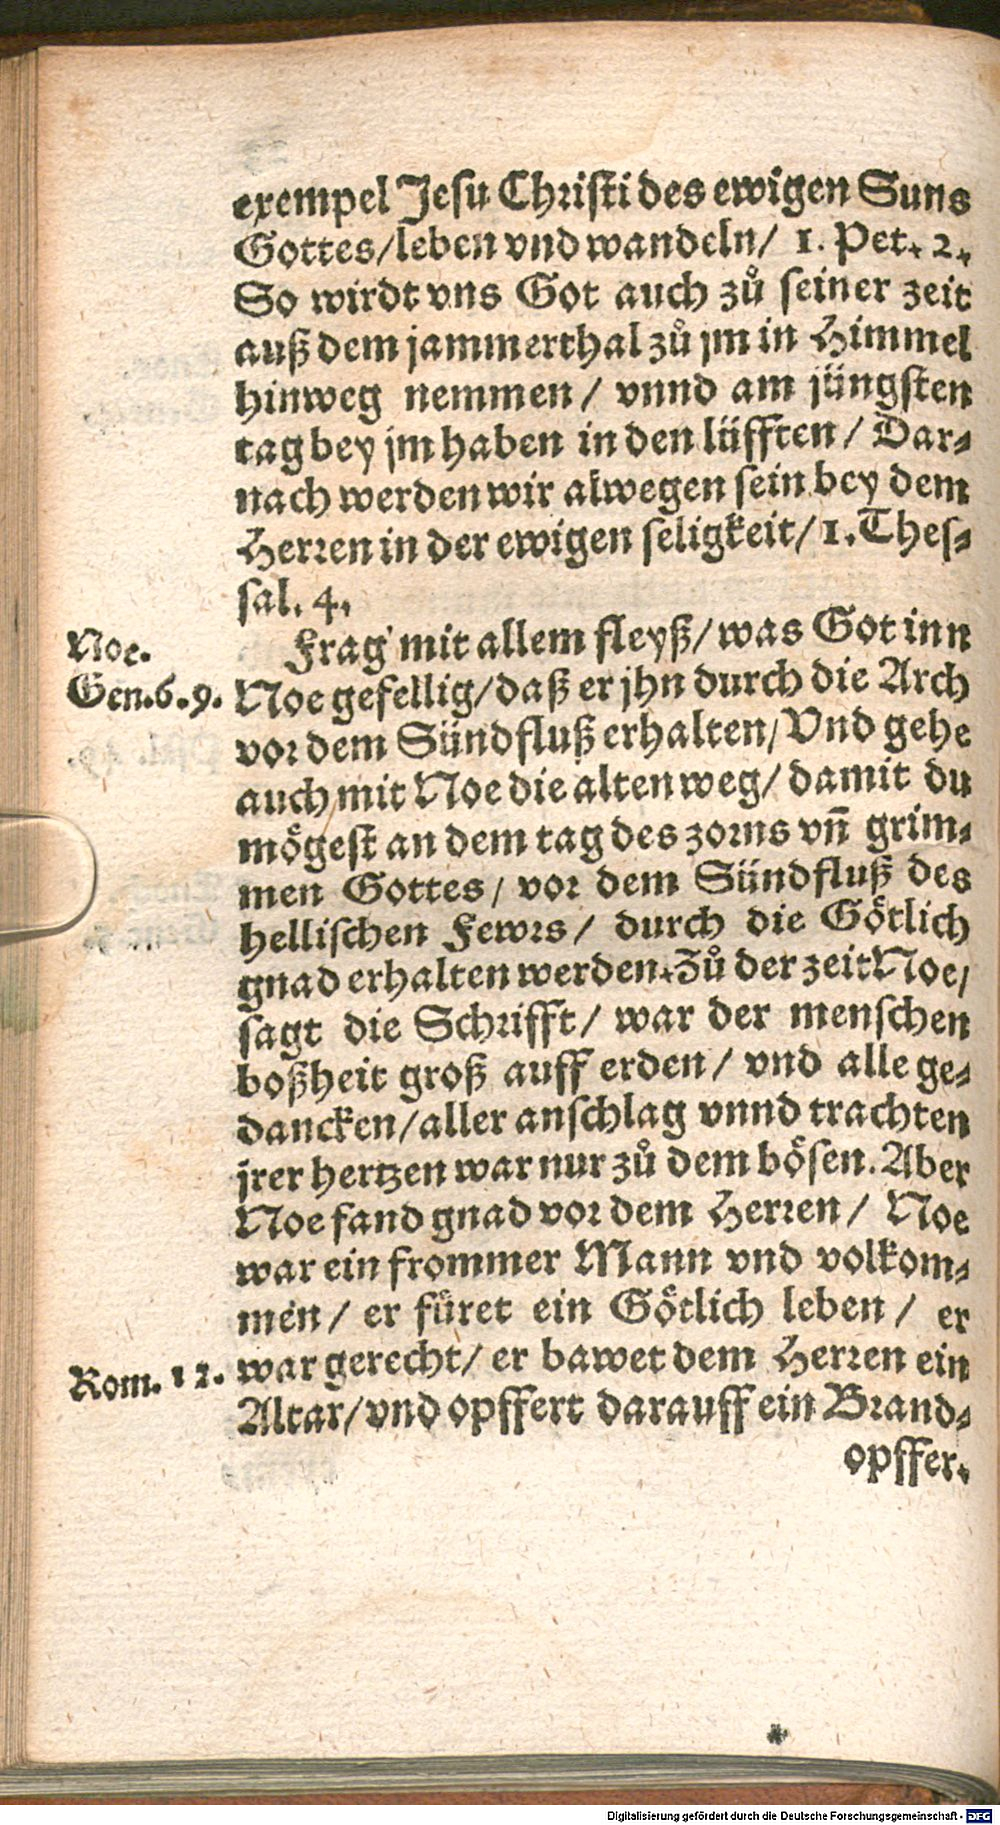 exempel Jesu Christi des ewigen Suns
Gottes/leben vnd wandeln/ 1. Pet. 2.
So wirdt vns Got auch zů seiner zeit
auß dem jammerthal zů jm in Himmel
hinweg nemmen/ vnnd am jüngsten
tag bey jm haben in den lüfften/ Dar⸗
nach werden wir alwegen sein bey dem
Herren in der ewigen seligkeit/ 1. Thes⸗
sal. 4.
Noe.
Frag mit allem fleyß/ was Got inn
Gen.6.9.
Noe gefellig/ daß er jhn durch die Arch
vor dem Sündfluß erhalten/ Vnd gehe
auch mit Noe die alten weg/ damit du
mögest an dem tag des zorns vñ grim⸗
men Gottes/ vor dem Sündfluß des
hellischen Fewrs/ durch die Götlich
gnad erhalten werden. Zů der zeit Noe/
sagt die Schrifft/ war der menschen
boßheit groß auff erden/ vnd alle ge⸗
dancken/ aller anschlag vnnd trachten
jrer hertzen war nur zů dem bösen. Aber
Noe fand gnad vor dem Herren/ Noe
war ein frommer Mann vnd volkom⸗
men/ er füret ein Götlich leben/ er
Rom. 12.
war gerecht/ er bawet dem Herren ein
Altar/ vnd opffert darauff ein Brand⸗
opffer.
*
Digitalisierung gefördert durch die Deutsche Forschungsgemeinschaft - DFG